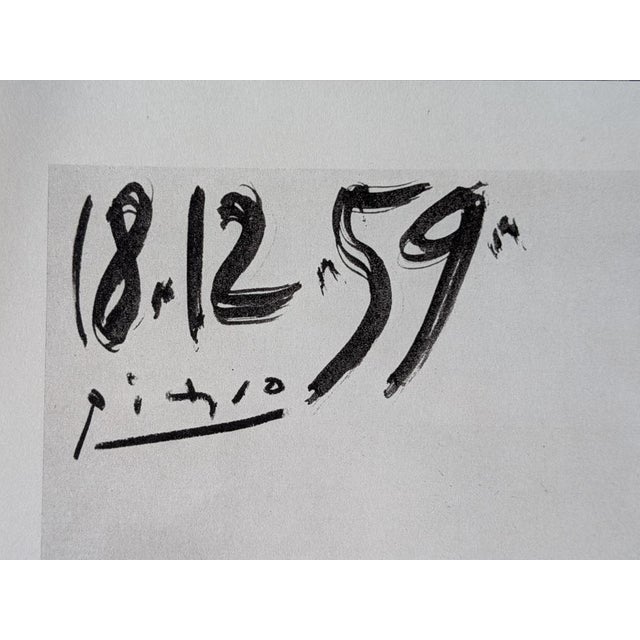 18.12.59.
Picasso